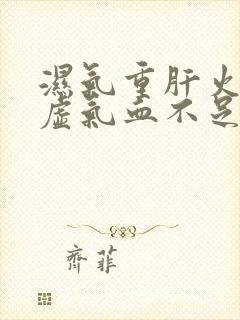 濕氣重肝火
虛氣血不足
齊菲